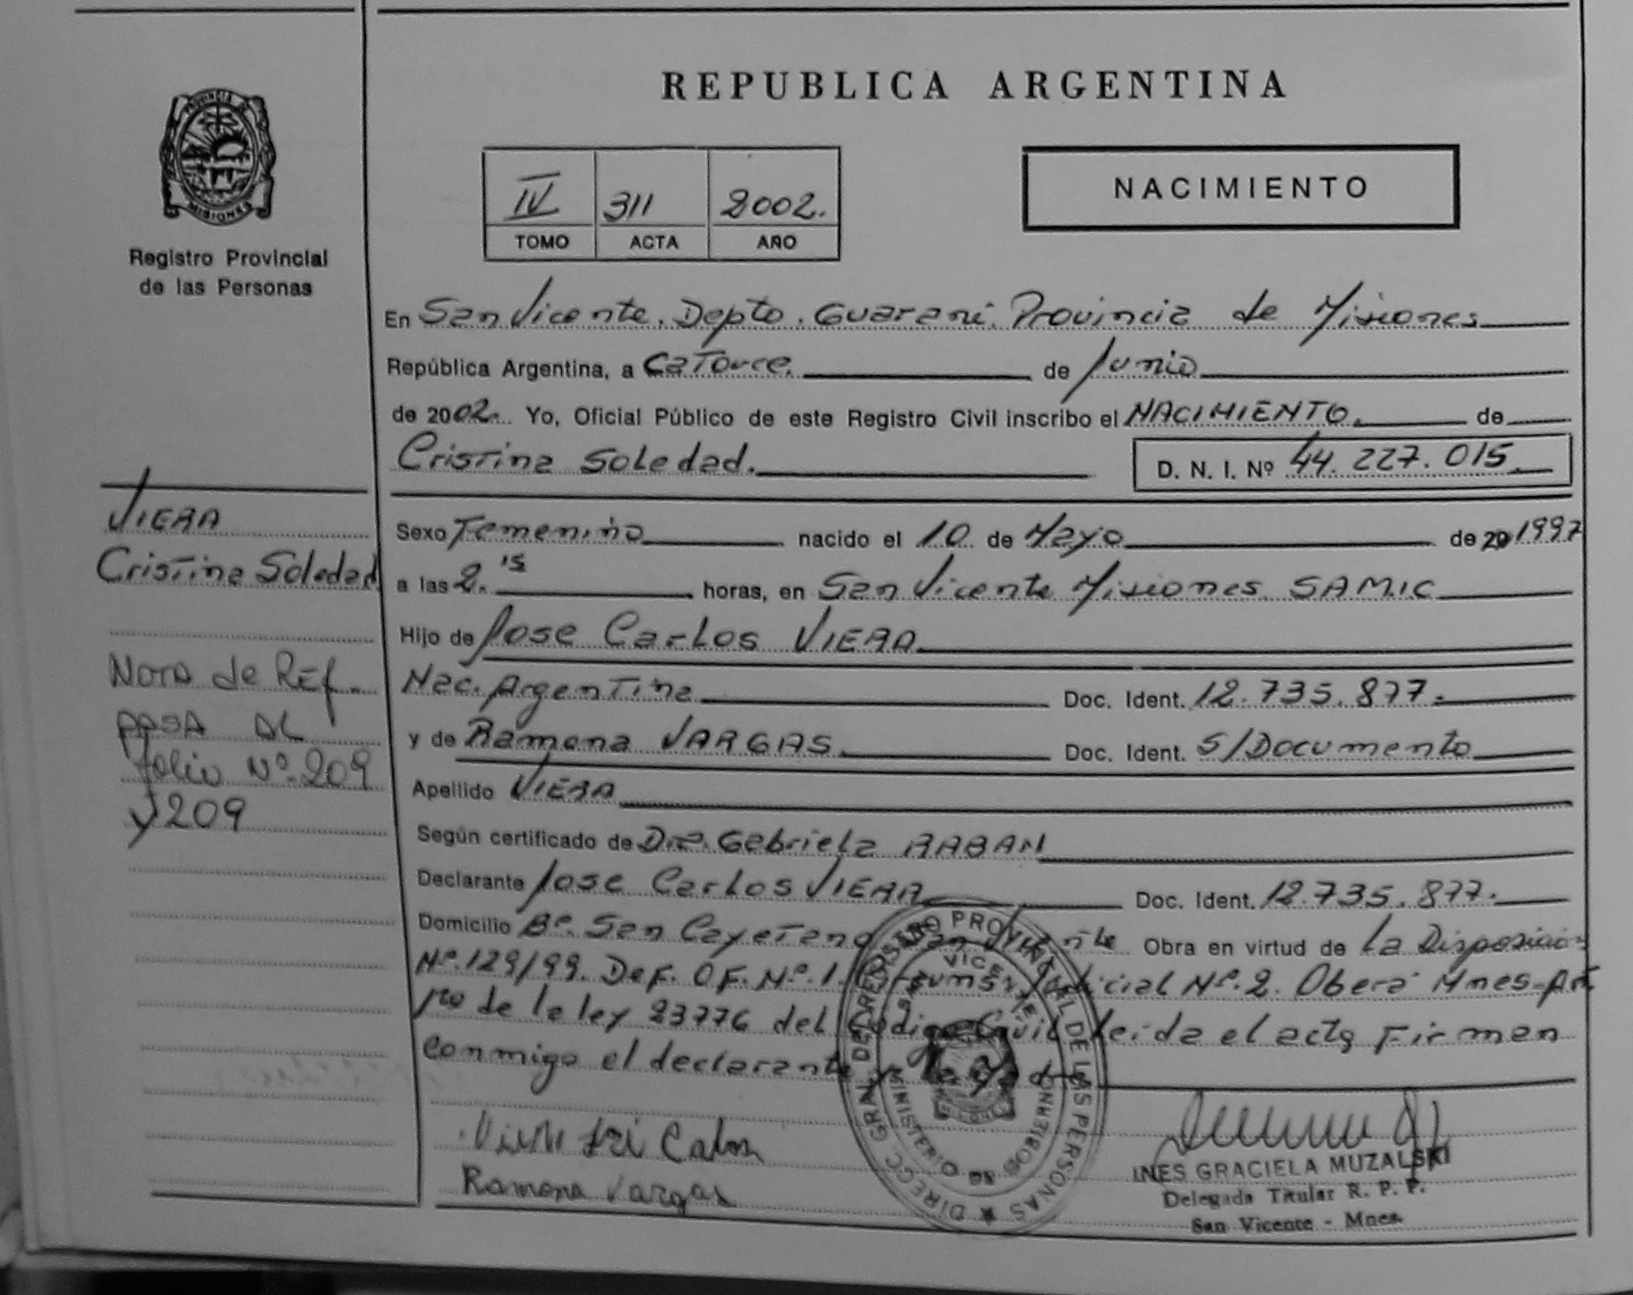 REPUBLICA ARGENTINA
PROVINCIA DE
MISIONES
Registro Provincial
de las Personas
IV 311 2002.
TOMO ACTA AÑO
NACIMIENTO
En San Vicente. Depto. Guaraní. Provincia de Misiones
República Argentina, a Catorce. de Junio
de 2002. Yo, Oficial Público de este Registro Civil inscribo el NACIMIENTO. de
Cristina Soledad. D. N. I. Nº 44.227.015
VIERA
Cristina Soledad
Nota de Ref.
PASA AL
folio Nº 209
y 209
Sexo Femenino nacido el 10 de Mayo de 20 1997
a las 2.15 horas, en San Vicente Misiones SAMIC
Hijo de Jose Carlos VIERA
Nac. Argentina Doc. Ident. 12.735.877.
y de Ramona VARGAS. Doc. Ident. S/Documento
Apellido VIERA
Según certificado de Dra. Gabriela RABAN
Declarante Jose Carlos VIERA Doc. Ident. 12.735.877.
Domicilio Bº. San Cayetano San Vicente Obra en virtud de La Disposición
Nº.129/99. DEF. OF. Nº.1. Judicial Nº.2. Oberá Mnes-
de la ley 23776 del Código Civil leída el acta Firman
conmigo el declarante y la
Ramona Vargas
DIRECC. GRAL. DEL REGISTRO PROVINCIAL DE LAS PERSONAS
SAN VICENTE
MINISTERIO DE GOBIERNO
INES GRACIELA MUZALSKI
Delegada Titular R. P. P.
San Vicente - Mnes.